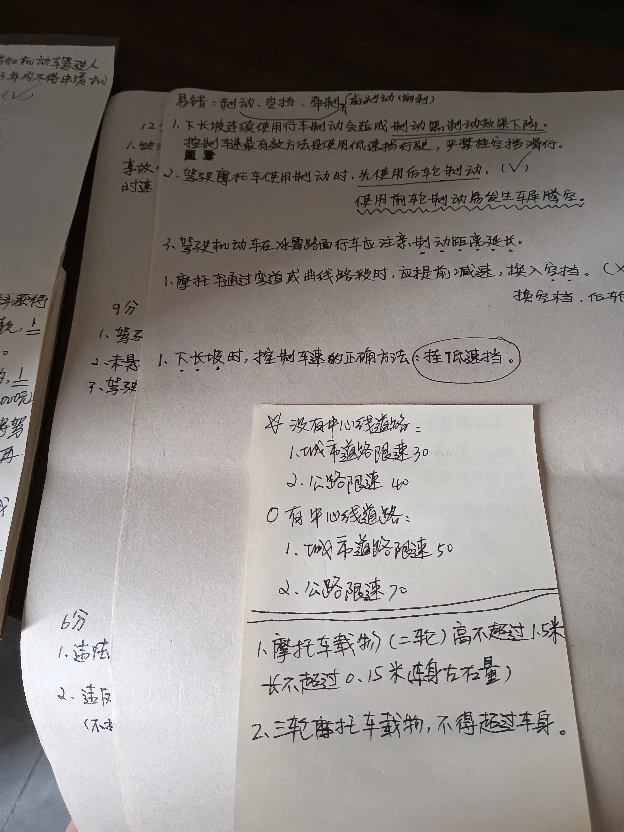 易错：制动、空挡、牵制，前制动（前刹）
1、下长坡连续使用行车制动会造成制动器制动效果下降。
控制车速最有效方法是使用低速挡行驶，严禁挂空挡滑行。
2、驾驶摩托车使用制动时，先使用后轮制动。（√）
使用前轮制动易发生车尾腾空。
3、驾驶机动车在冰雪路面行车应注意，制动距离延长。
1、摩托车通过弯道或曲线路段时，应提前减速，换入空挡。（X
换空档，后轮
1、下长坡时，控制车速的正确方法：挂低速挡。
没有中心线道路：
1、城市道路限速30
2、公路限速 40
有中心线道路：
1、城市道路限速50
2、公路限速70
1、摩托车载物（二轮）高不超过1.5米
长不超过0.15米（车身左右量）
2、三轮摩托车载物，不得超过车身。
12
1、
事故
时速
9分
1、驾驶
2、未悬
3、驾驶
6分
1、违法
2、违反
（不